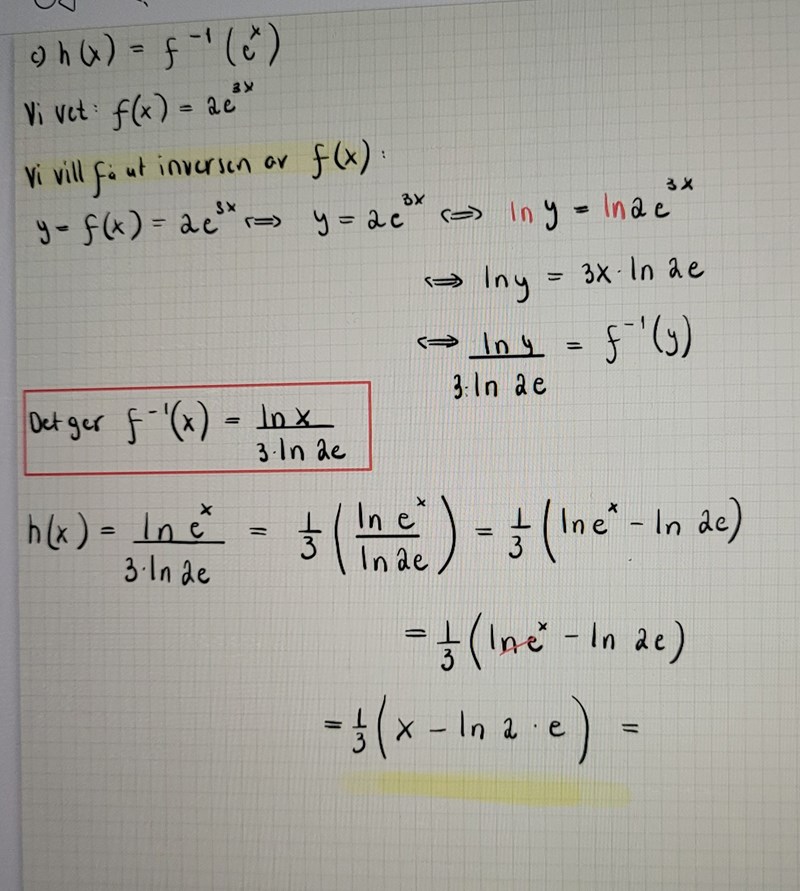 c) h(x) = f⁻¹(eˣ)
Vi vet: f(x) = 2e³ˣ
Vi vill få ut inversen av f(x):
y = f(x) = 2e³ˣ ⟺ y = 2e³ˣ ⟺ ln y = ln 2e³ˣ
⟺ ln y = 3x · ln 2e
⟺ ln y / 3·ln 2e = f⁻¹(y)
Det ger f⁻¹(x) = ln x / 3·ln 2e
h(x) = ln eˣ / 3·ln 2e = 1/3 (ln eˣ / ln 2e) = 1/3 (ln eˣ - ln 2e)
= 1/3 (ln eˣ - ln 2e)
= 1/3 (x - ln 2 · e) =